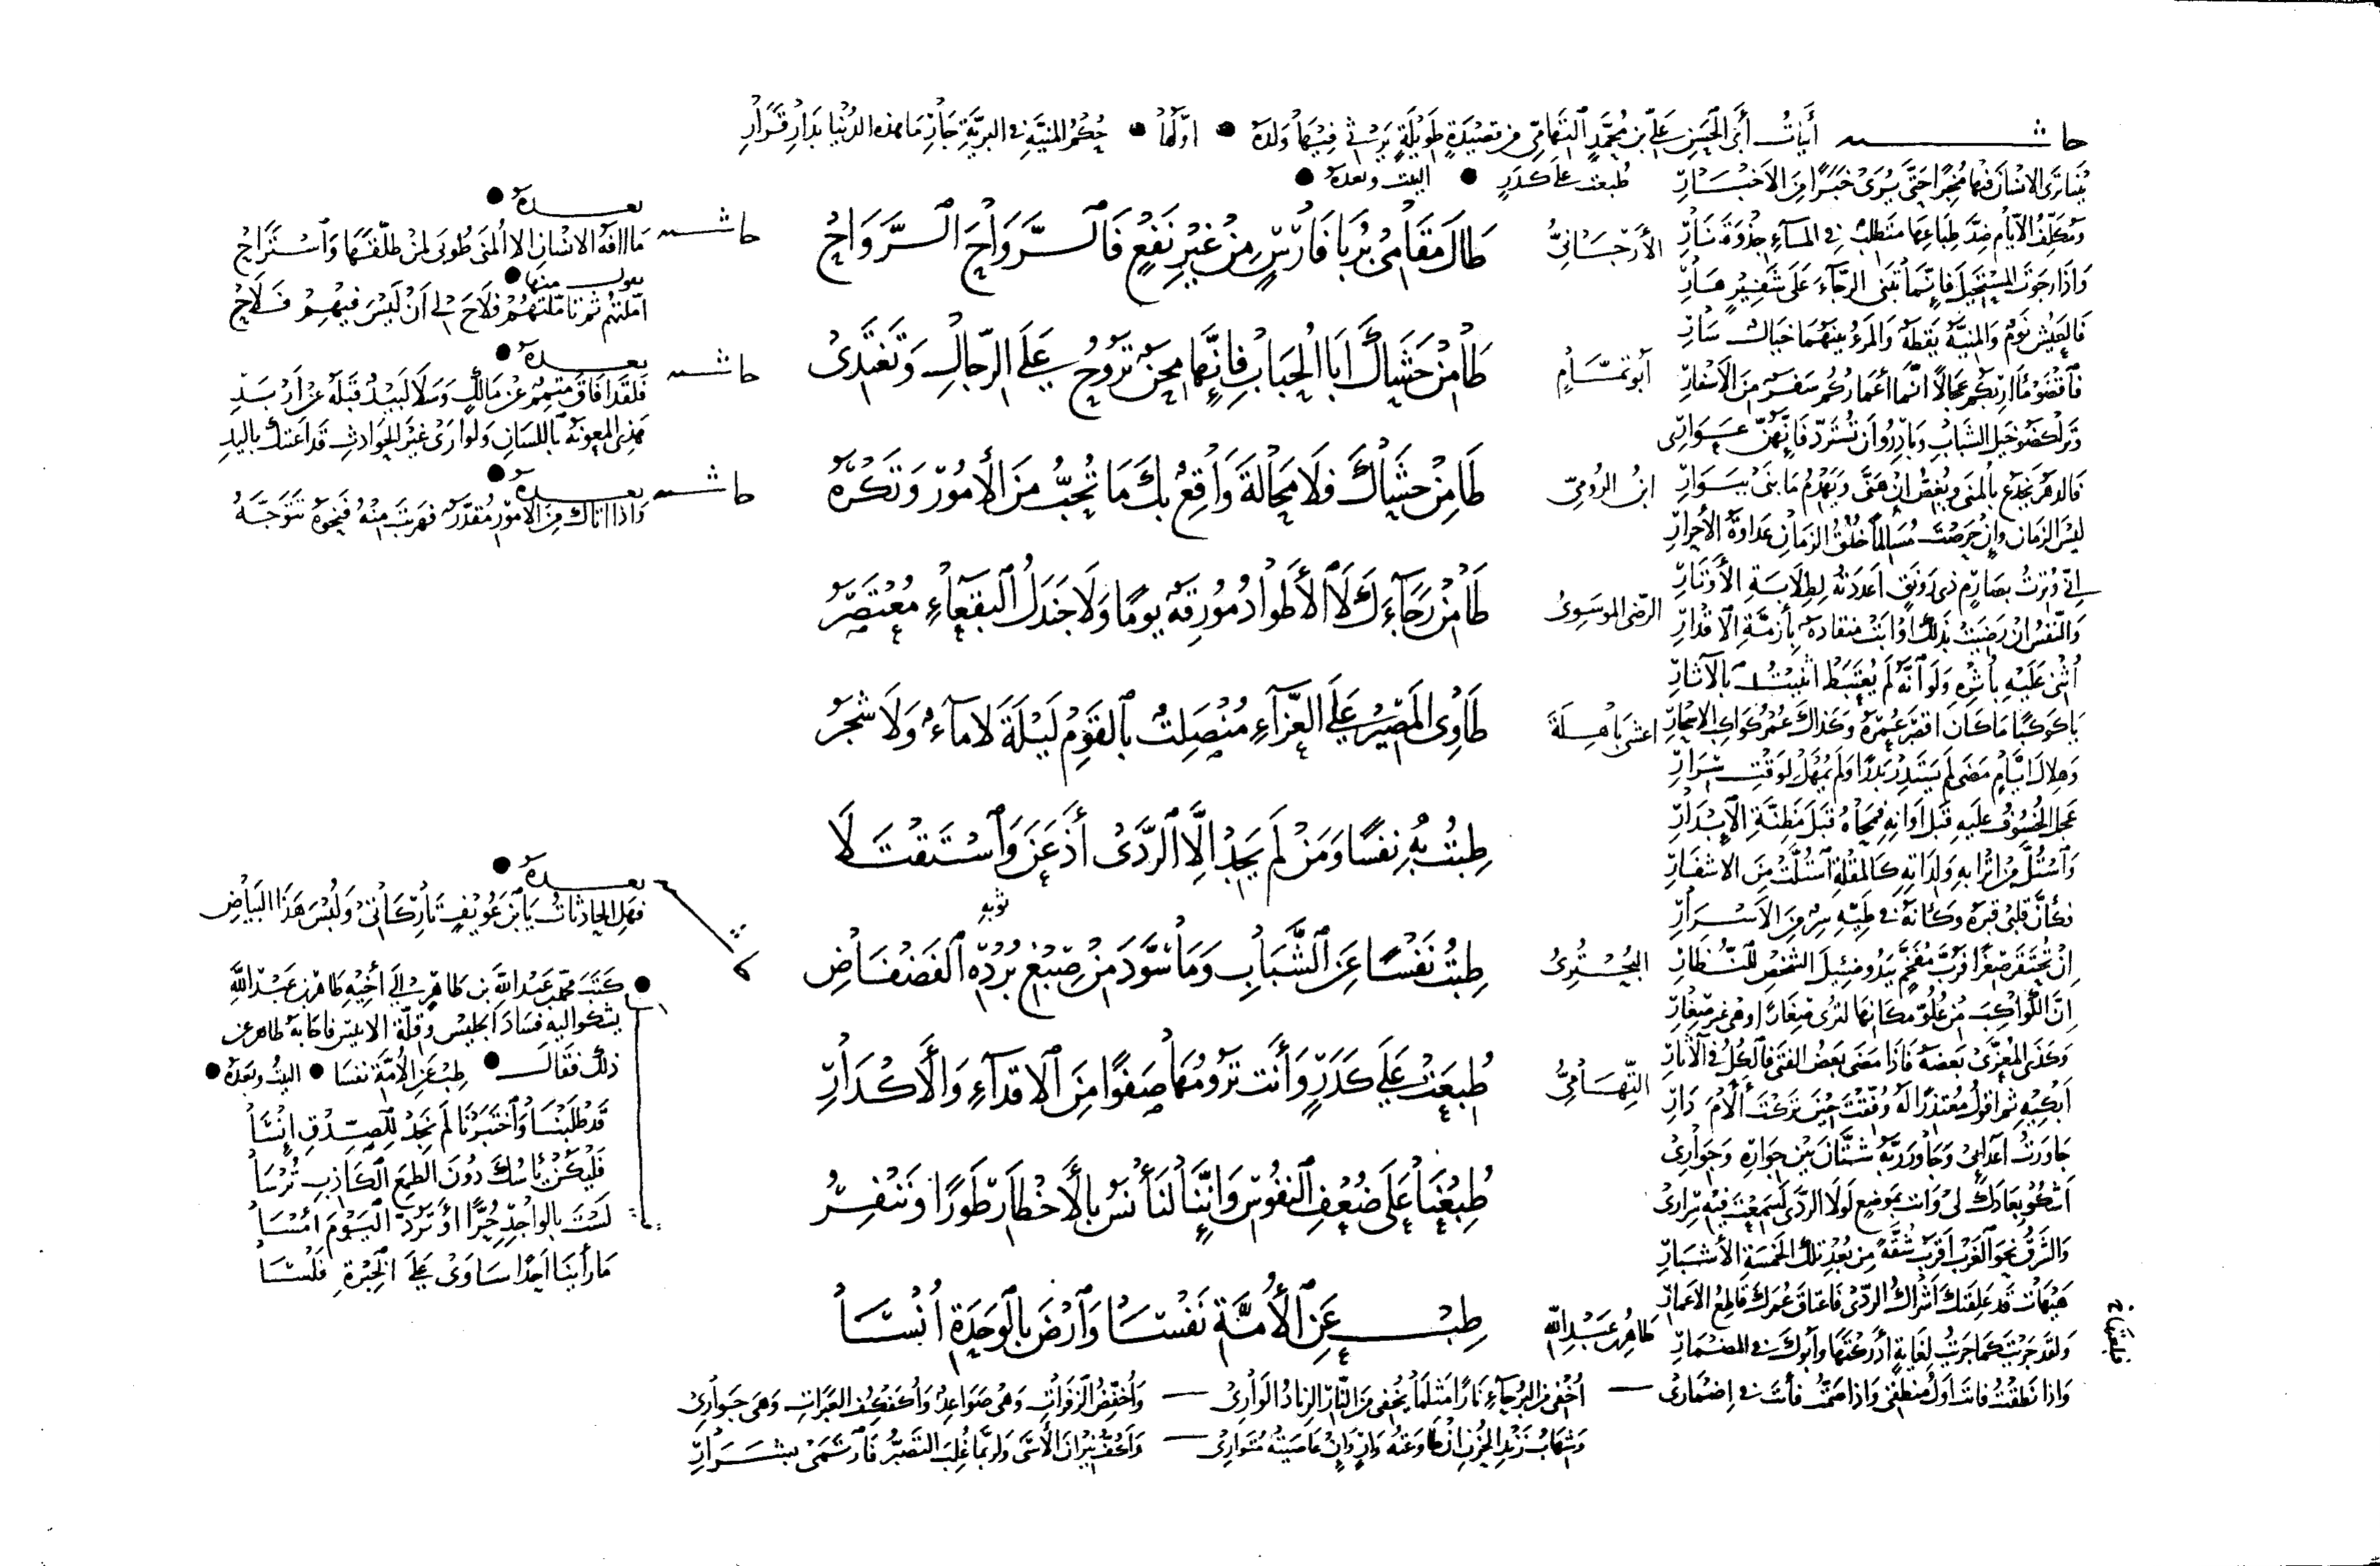 حاشية أبيات أبي الحسن علي بن محمد التهامي من قصيدة طويلة يرثي فيها ولده • أولها • حكم المنية في البرية جار ما هذه الدنيا بدار قرار
طبعت على كدر • البيت وبعده •
بينا ترى الانسان فيها مخبرا حتى يرى خبرا من الاخبار
ومكلف الأيام ضد طباعها متطلب في الماء جذوة نار
واذا رجوت المستحيل فإنما تبني الرجاء على شفير هار
فالعيش نوم والمنية يقظة والمرء بينهما خيال سار
فاقضوا مآربكم عجالا انما أعماركم سفر من الاسفار
وتراكضوا خيل الشباب وبادروا أن تسترد فإنهن عوار
فالدهر يخدع بالمنى ويغص ان هنى ويهدم ما بنى ببوار
ليس الزمان وان حرصت مسالما خلق الزمان عداوة الأحرار
اني وترت بصارم ذي رونق اعددته لطلابة الأوتار
والنفس ان رضيت بذلك أو ابت منقادة بأزمة الاقدار
أثني عليه بأثره ولو أنه لم يغتبط اثنيت بالآثار
يا كوكبا ما كان اقصر عمره وكذاك عمر كواكب الاسحار
وهلال ايام مضى لم يستدر بدرا ولم يمهل لوقت سرار
عجل الخسوف عليه قبل اوانه فمحاه قبل مظنة الإبدار
واستل من اترابه ولداته كالمقلة استلت من الاشفار
فكأن قلبي قبره وكأنه في طيه سر من الاسرار
ان تحتقر صغرا فرب مفخم يبدو ضئيل الشخص للنظار
ان الكواكب من علو مكانها لترى صغارا وهي غير صغار
ولد المعزى بعضه فاذا مضى بعض الفتى فالكل في الآثار
أبكيه ثم اقول معتذرا له وفقت حين تركت ألأم دار
جاورت اعدائي وجاور ربه شتان بين جواره وجواري
اشكو بعادك لي وانت بموضع لولا الردى لسمعت فيه مزاري
والشرق نحو الغرب اقرب شقة من بعد تلك الخمسة الأشبار
هيهات قد علقتك اشراك الردى فاعتاق عمرك قاطع الاعمار
ولقد جريت كما جريت لغاية أدركتها وأبوك في المضمار
واذا نطقت فانت أول منطقي واذا صمت فأنت في إضماري
أخفي من البرحاء نارا مثلما يخفي من النار الزناد الواري
وأخفض الزفرات وهي صواعد وأكفكف العبرات وهي جواري
وشهاب زند الحزن ان طاوعته وار وان عاصيته متواري
وأكف نيران الأسى ولربما غلب التصبر فارتمت بشرار
الأرجاني
طال مقامي بربا فارس من غير نفع فالرواح الرواح
أبو تمام
طامن حشاك أبا الحباب فإنها محن تروح على الرجال وتغتدي
ابن الرومي
طامن حشاك فلا محالة واقع بك ما تحب من الأمور وتكره
الرضي الموسوي
طامن رجاءك لا الأطواد مورقة يوما ولا جندل البقعاء معتصر
اعشى باهلة
طاوي المصير على العزاء منصلت بالقوم ليلة لا ماء ولا شجر
طبت به نفسا ومن لم يجد إلا الردى أذعن واستقتلا
ثوبه
البحتري
طبت نفسا عن الشباب وما سود من صبغ برده الفضفاض
التهامي
طبعت على كدر وأنت ترومها صفوا من الاقداء والأكدار
طبعنا على ضعف النفوس واننا لنأنس بالأخطار طورا وننفر
طاهر بن عبد الله
طب عن الأمة نفسا وارض بالوحدة أنسا
حاشية بعده •
ما آفة الانسان الا المنى طوبى لمن طلقها واستراح
يقول منها •
املتهم ثم تأملتهم فلاح لي أن ليس فيهم فلاح
حاشية بعده •
فلقد افاق متمم عن مالك وسلا لبيد قبله عن أربد
هذي المعونة باللسان ولو ارى غير الحوادث قد اعنتك باليد
حاشية بعده •
واذا اتاك من الامور مقدر فهربت منه فنحوه تتوجه
بعده •
فهل الحادثات يا بن عويف تاركاتي ولبس هذا البياض
• كتب محمد بن عبد الله بن طاهر الى أخيه طاهر بن عبد الله
يشكو اليه فساد الجليس وقلة الانيس فاجابه طاهر عن
ذلك فقال • طب عن الأمة نفسا • البيت وبعده •
قد طلبنا واختبرنا لم نجد للصدق إنسا
فليكن يأسك دون الطمع الكاذب ترسا
لست بالواجد حرا او ترد اليوم أمسا
ما رأينا احدا ساوى على الخبرة فلسا